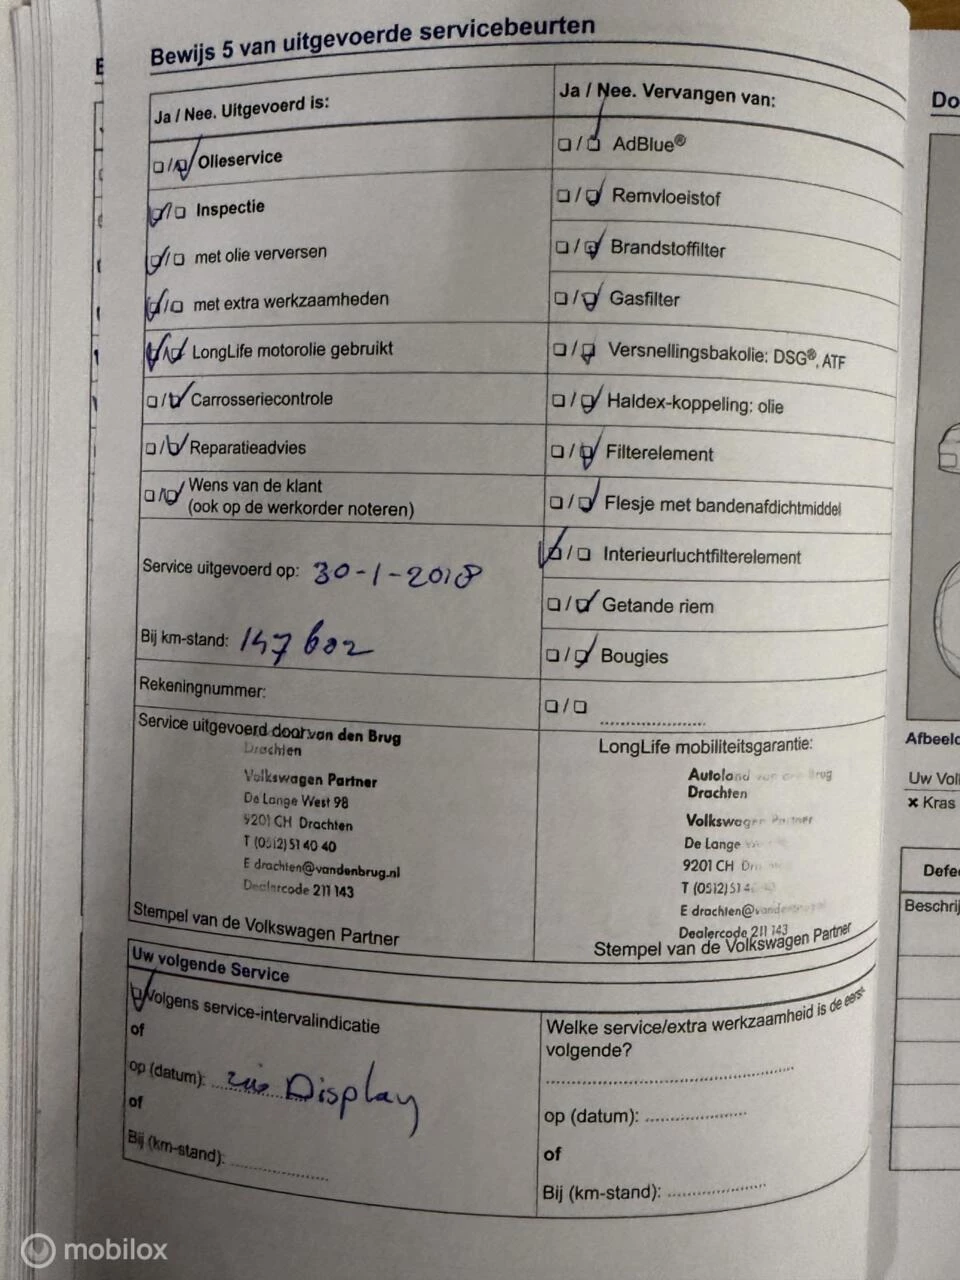 Bewijs 5 van uitgevoerde servicebeurten
Ja / Nee. Uitgevoerd is:
Olieservice
Inspectie
met olie verversen
met extra werkzaamheden
LongLife motorolie gebruikt
Carrosseriecontrole
Reparatieadvies
Wens van de klant
(ook op de werkorder noteren)
Service uitgevoerd op: 30-1-2018
Bij km-stand: 147602
Rekeningnummer:
Service uitgevoerd door:
van den Brug
Drachten
Volkswagen Partner
De Lange West 98
9201 CH Drachten
T (0512) 51 40 40
E drachten@vandenbrug.nl
Dealercode 211 143
Stempel van de Volkswagen Partner
Ja / Nee. Vervangen van:
AdBlue®
Remvloeistof
Brandstoffilter
Gasfilter
Versnellingsbakolie: DSG®, ATF
Haldex-koppeling: olie
Filterelement
Flesje met bandenafdichtmiddel
Interieurluchtfilterelement
Getande riem
Bougies
LongLife mobiliteitsgarantie:
Autoland van den Brug
Drachten
Volkswagen Partner
De Lange
9201 CH
T (0512) 51 4
E drachten@vandenbrug
Dealercode 211 143
Stempel van de Volkswagen Partner
Uw volgende Service
Volgens service-intervalindicatie
of
op (datum): zie Display
of
Bij (km-stand):
Welke service/extra werkzaamheid is de eerst-
volgende?
op (datum):
of
Bij (km-stand):
Do
Afbeeld
Uw Vol
× Kras
Defe
Beschrij
mobilox